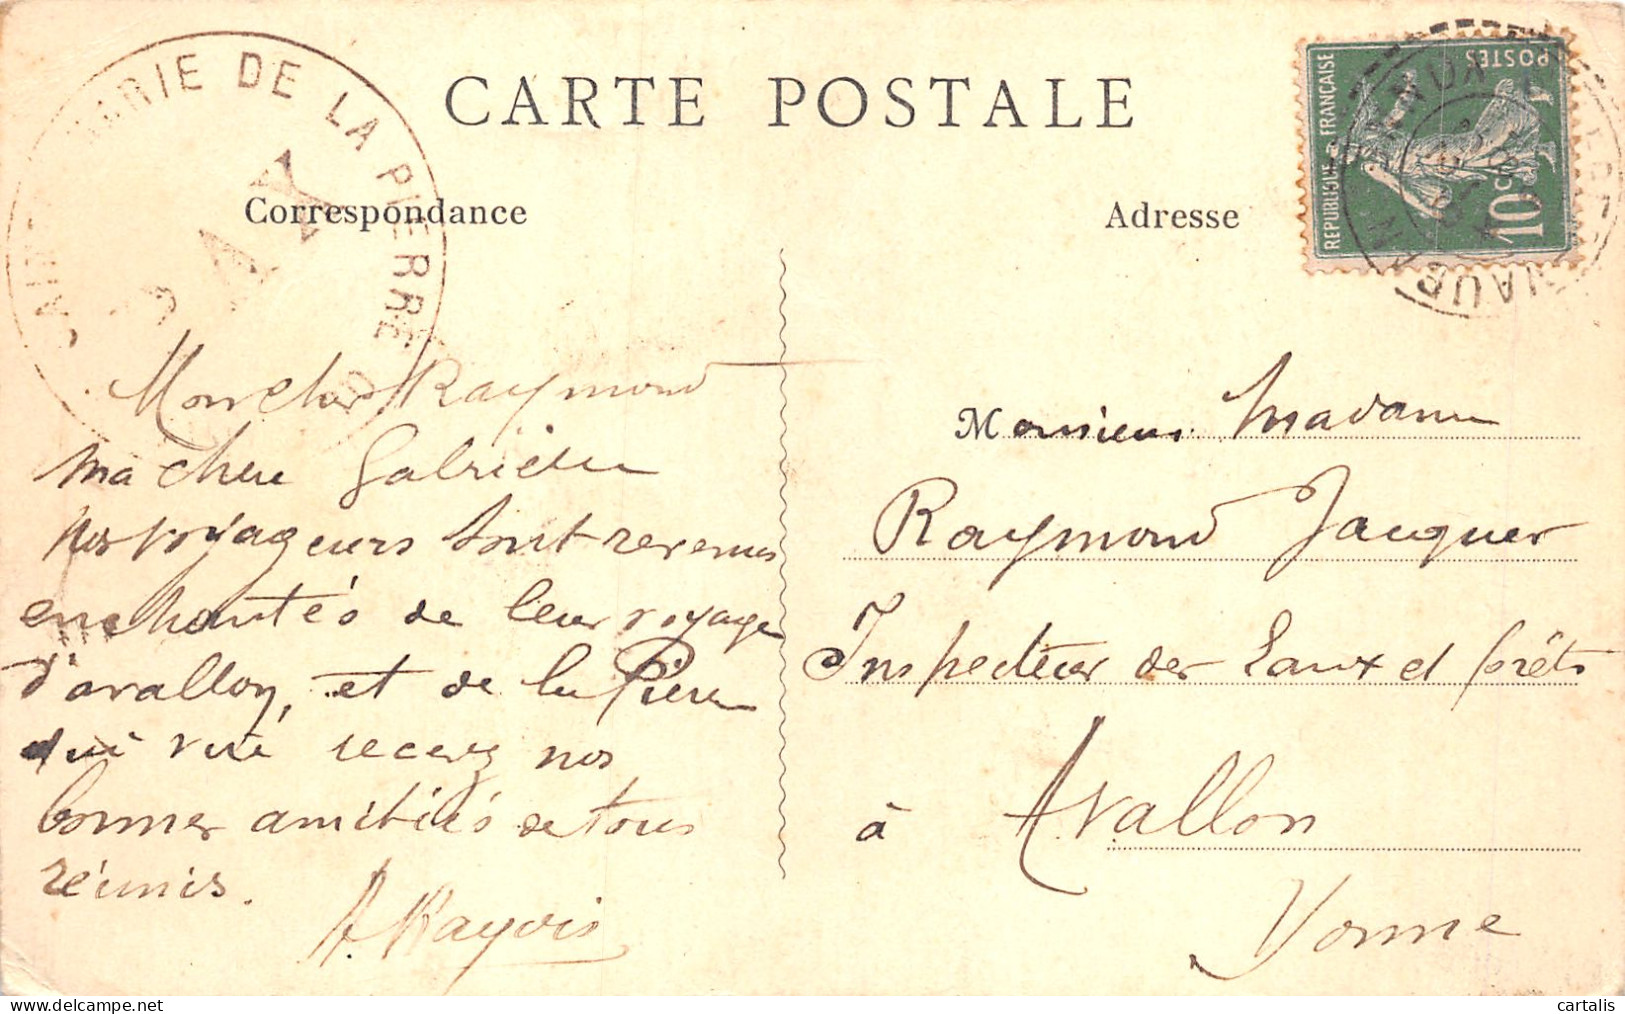 CARTE POSTALE
MARIE DE LA PIERRE QUI
Correspondance
Adresse
REPUBLIQUE FRANÇAISE
POSTES
10c
Mon cher Raymond
Ma chere Gabrielle
Nos voyageurs sont revenus
enchantés de leur voyage
d'avallon, et de la Pierre
qui vire recevez nos
bonnes amitiés de tous
réunis.
Monsieur Madame
Raymond Jacquer
Inspecteur des Eaux et forêts
à Avallon
Yonne
cartalis